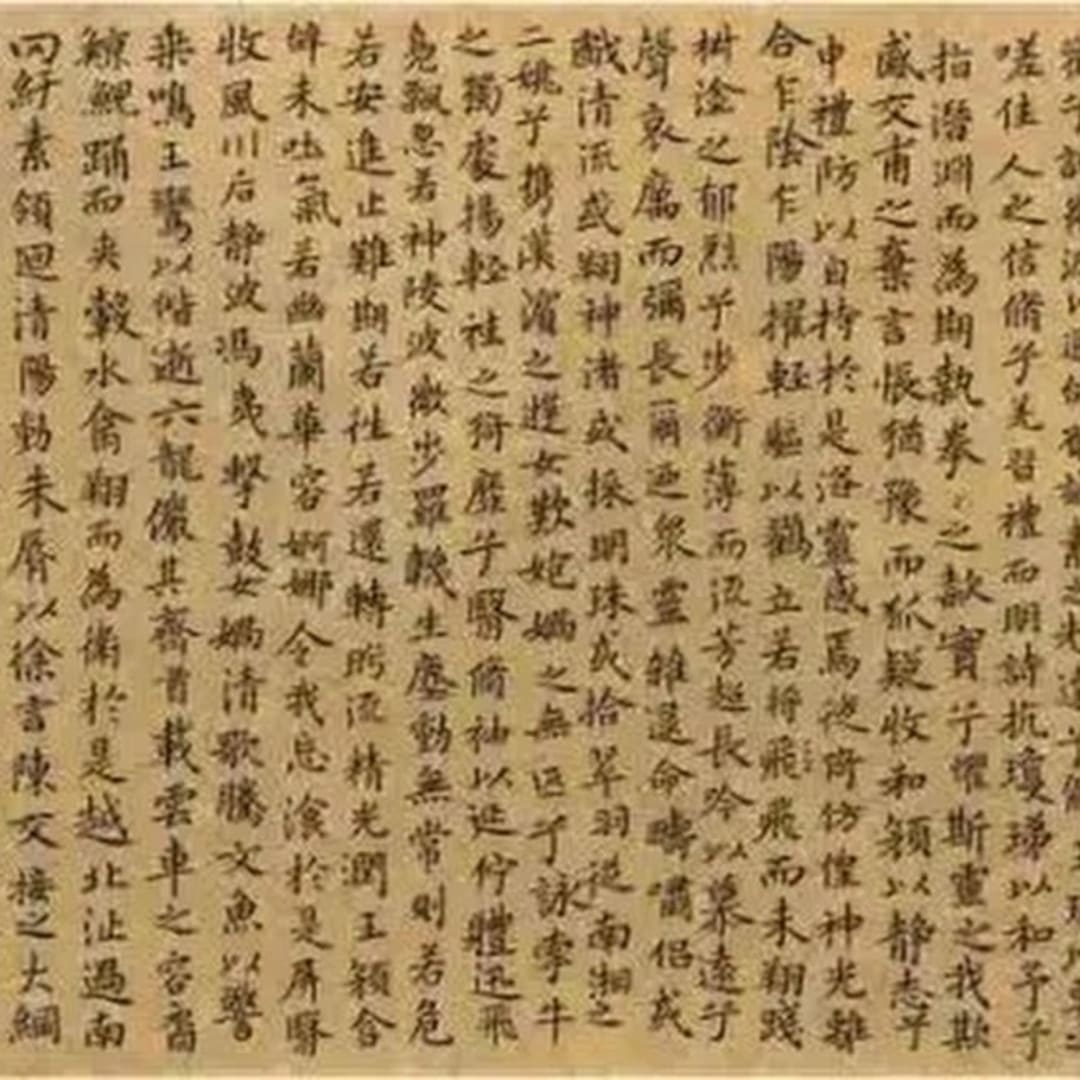 嗟佳人之信脩兮羌習禮而明詩抗瓊珶以和予兮
指潛淵而為期執拳〻之款實兮懼斯靈之我欺
感交甫之棄言悵猶豫而狐疑收和顏以靜志兮
申禮防以自持於是洛靈感焉徙倚仿偟神光離
合乍陰乍陽擢輕軀以鶴立若將飛飛而未翔踐
椒塗之郁烈兮步衡薄而流芳超長吟以慕遠兮
聲哀厲而彌長爾迺衆靈雜遝命疇嘯侶或
戲清流或翔神渚或採明珠或拾翠羽從南湘之
二姚兮攜漢濱之遊女歎匏媧之無匹兮詠牽牛
之獨處揚輕袿之猗靡兮翳脩袖以延佇體迅飛
鳧飄忽若神陵波微步羅韈生塵動無常則若危
若安進止難期若往若還轉眄流精光潤玉顏含
辭未吐氣若幽蘭華容婀娜令我忘飡於是屏翳
收風川后靜波馮夷擊鼓女媧清歌騰文魚以警
乘鳴玉鸞以偕逝六龍儼其齊首載雲車之容裔
鯨鯢踴而夾轂水禽翔而為衛於是越北沚過南
岡紆素領迴清陽動朱脣以徐言陳交接之大綱